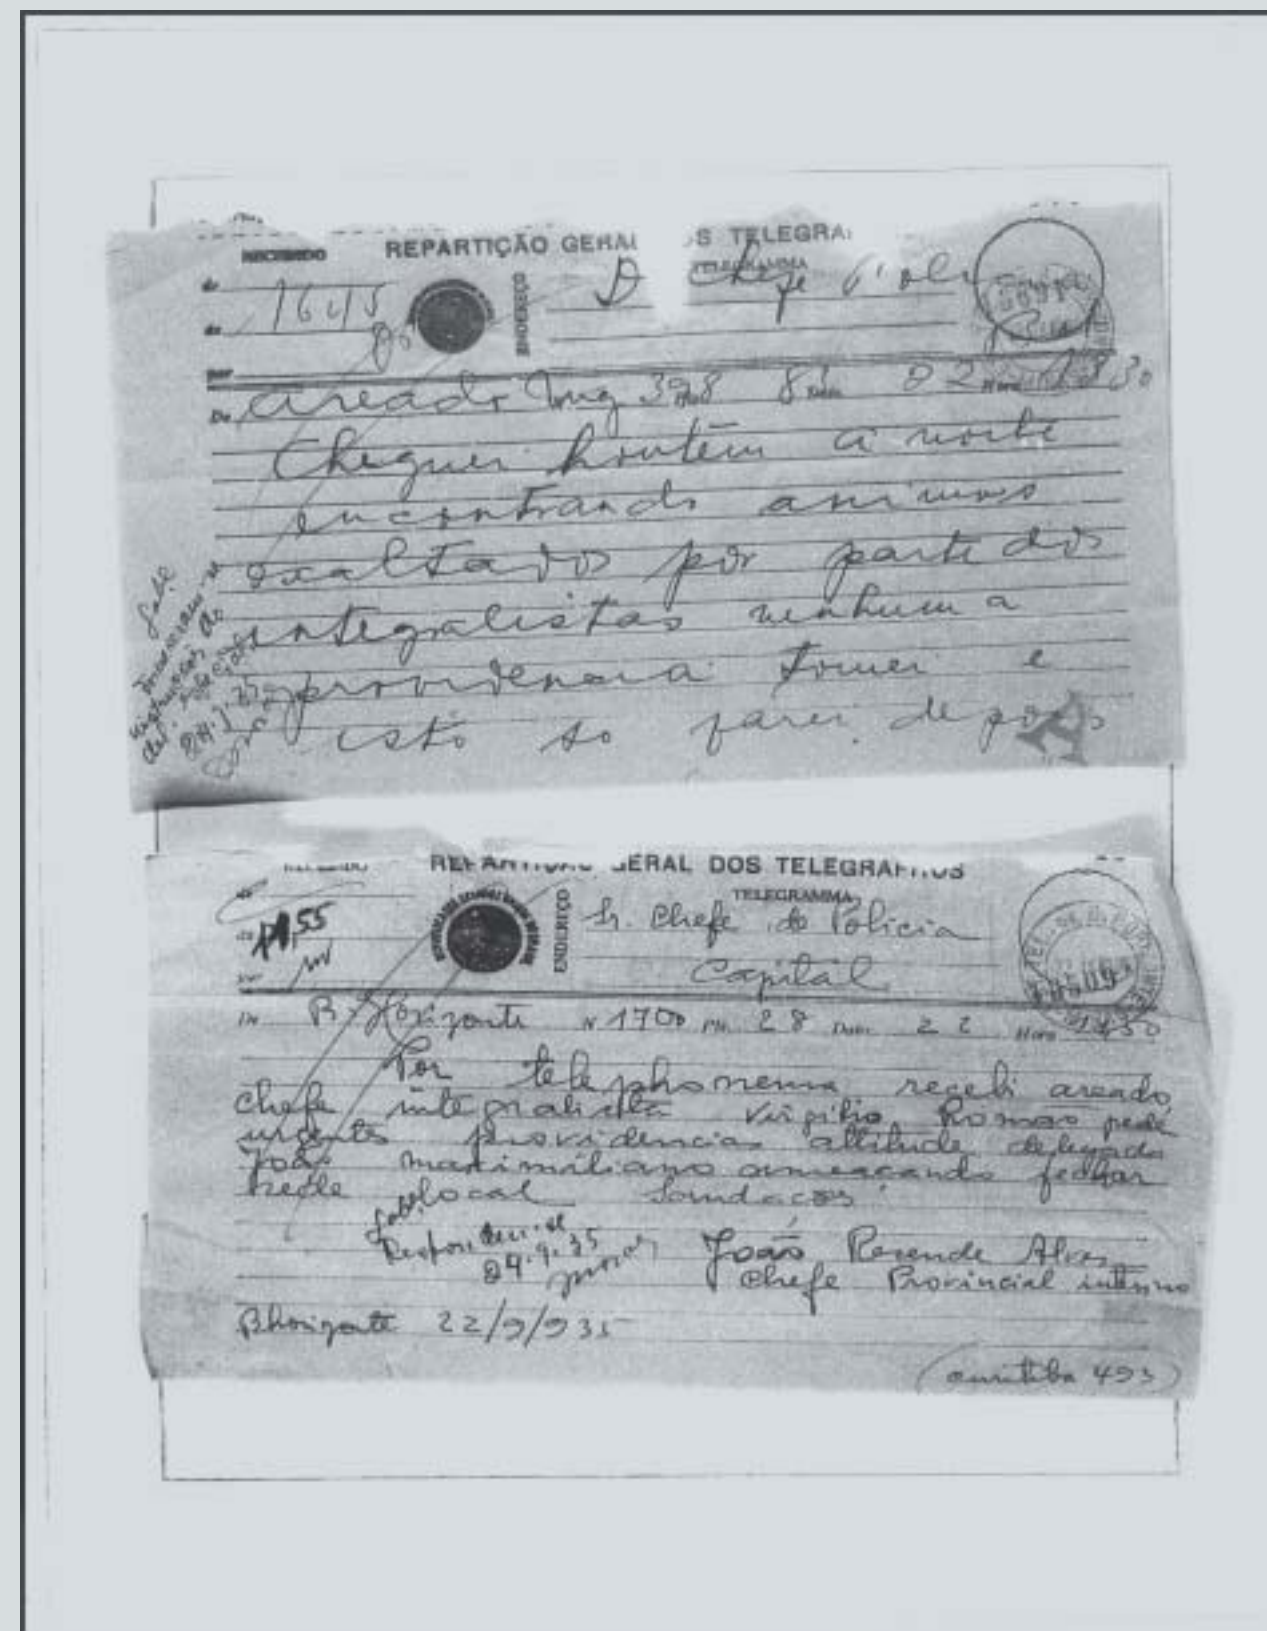 RECEBIDO
REPARTIÇÃO GERAL OS TELEGRA
TELEGRAMMA
de
16,15
ENDEREÇO
D Chefe
de
por
De Areado Mg 398 82 Data 22 Hora 1830
Cheguei hontem a noite
encontrando animos
exaltados por parte dos
integralistas nenhuma
providencia tomei e
isto so farei depois
A
Gab.
instrucções do
24.9.35
REPARTIÇÃO GERAL DOS TELEGRAPHOS
TELEGRAMMA
de
ENDEREÇO
Sr. Chefe de Policia
55
Capital
por
De B. Horizonte N 1700 Pls. 28 Data 22 Hora 1450
Por telephonema recebi areado
chefe integralista Virgilio Romão pede
urgentes providencias attitude delegado
João Maximiliano ameaçando fechar
sede local Saudações
Gab.
Respondeu-se
24.9.35
João Resende Alves
Chefe Provincial interino
Bhorizonte 22/9/935
(Curitiba 493)